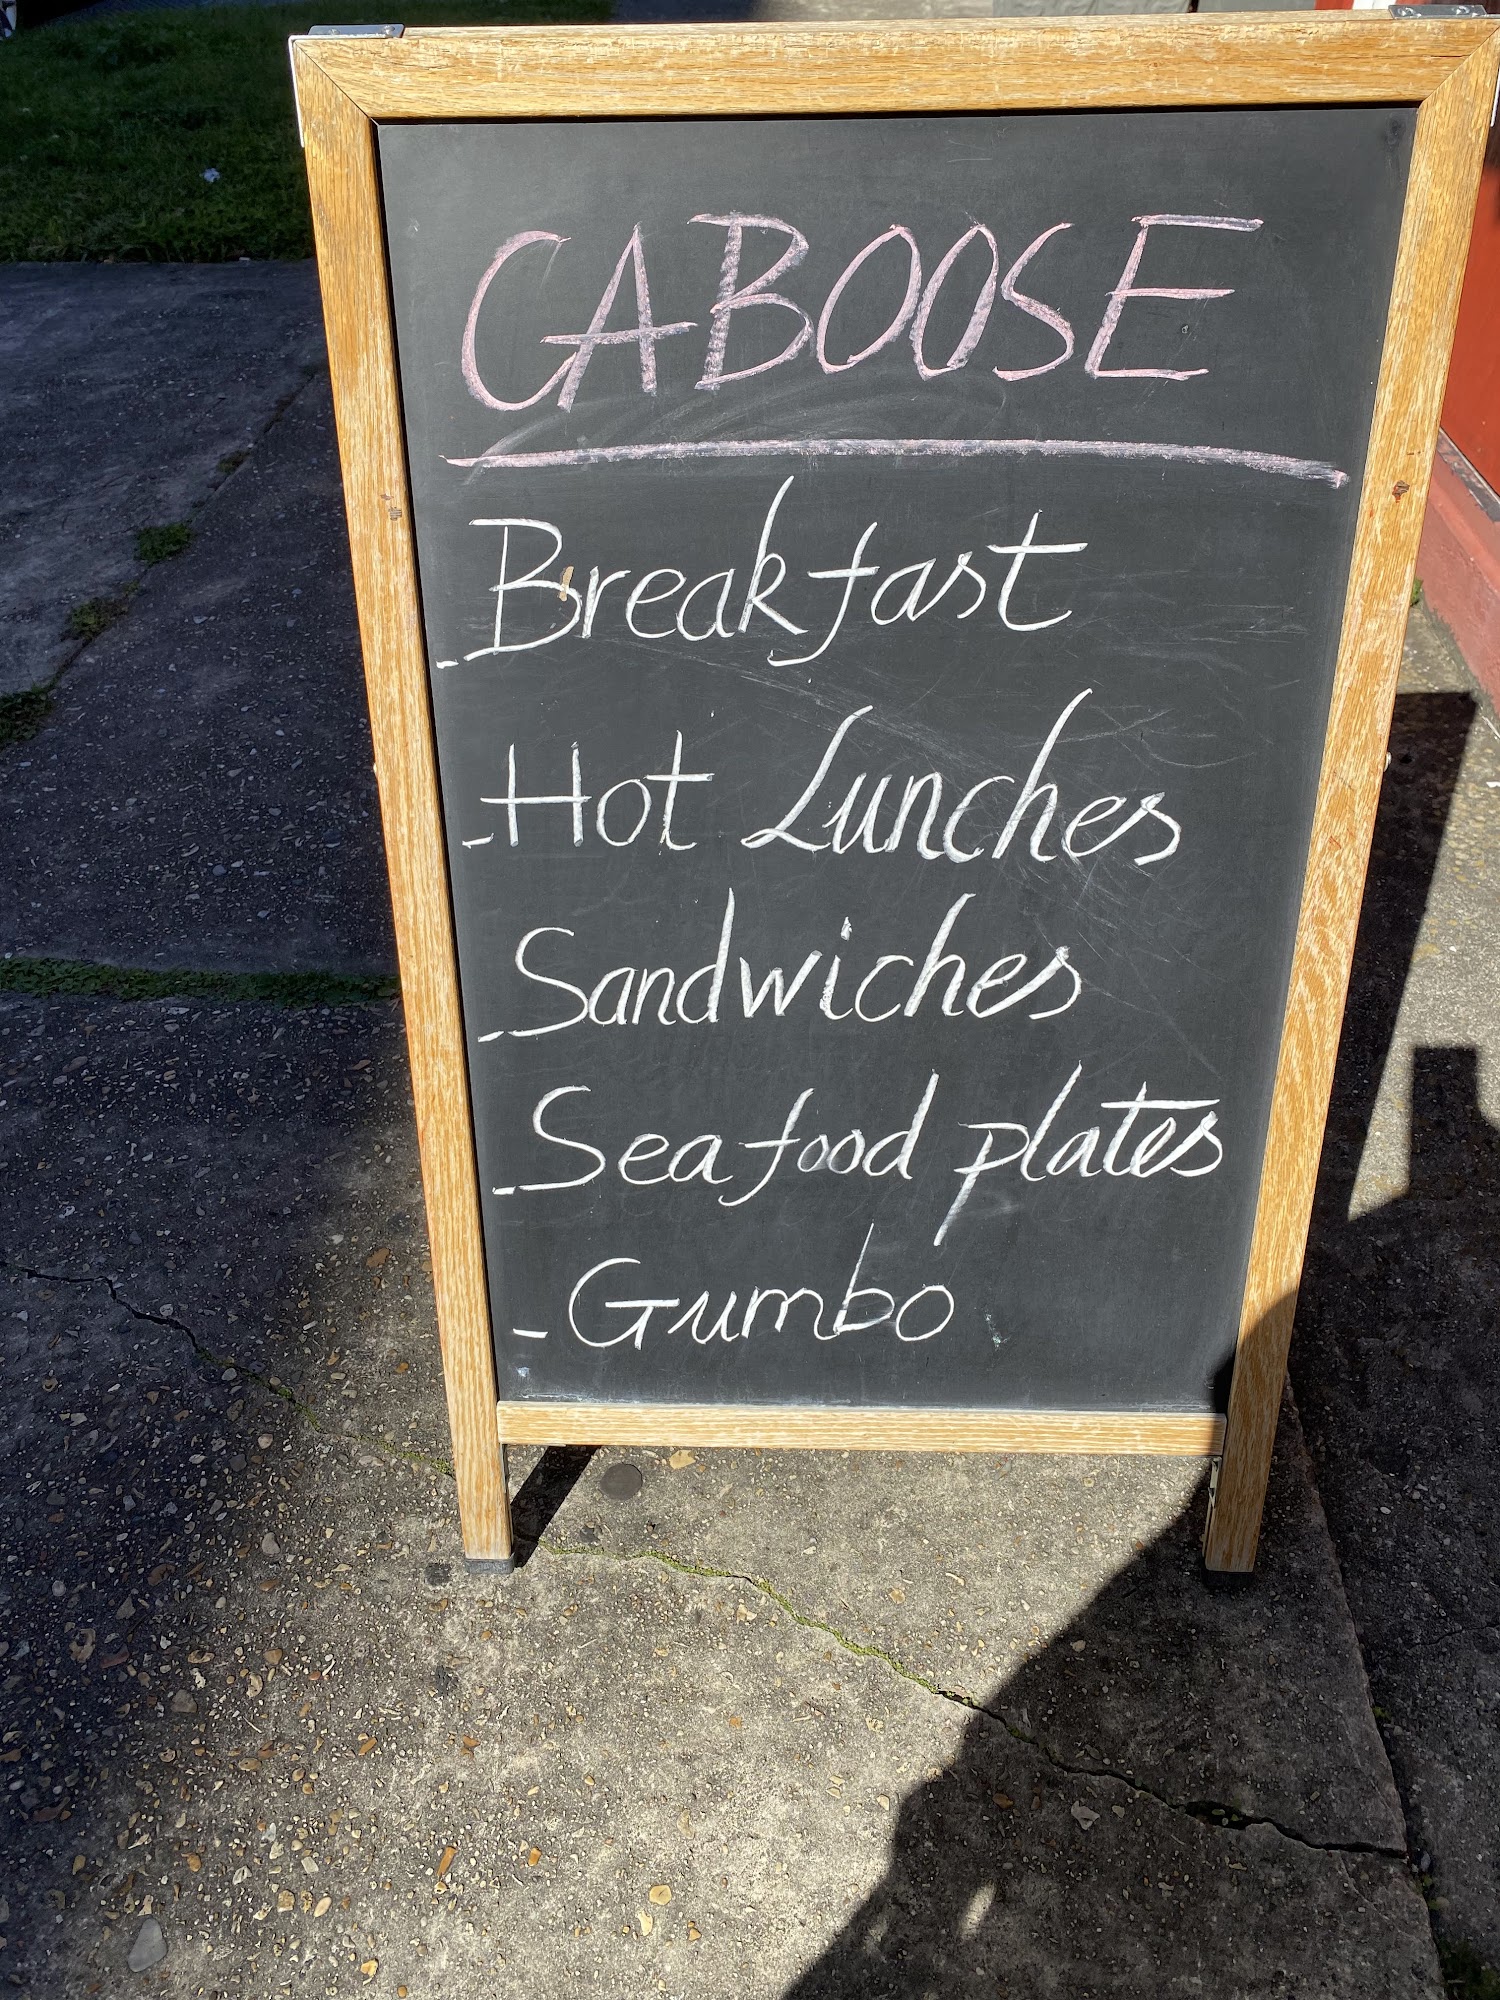 CABOOSE
- Breakfast
- Hot Lunches
- Sandwiches
- Seafood plates
- Gumbo